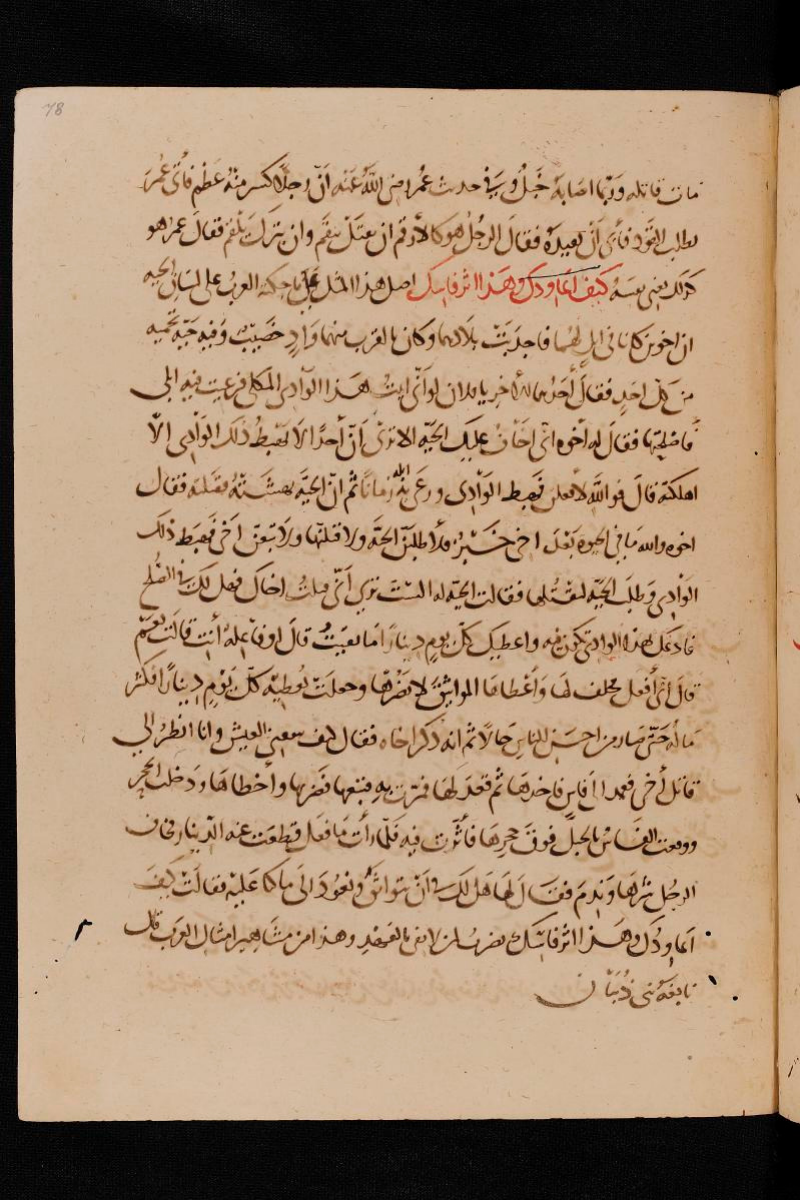 78
مات قاتله وربّما اصابهُ خَبَلٌ ويرَ في حديث عُمر رضى اللّهُ عنه انّ رجلًا كسر منهُ عَظْم فأتى عُمَرَ
يطلب القَوَد فأبى اَنْ يُقيدَهُ فقالَ الرجُلُ هو كالأرقم ان يقتل ينقَم وان يترك يَلْقَم فقالَ عمر هو
كذلك يعنى نفسهُ كيف اعاودك وهذا اثر فاسك اصل هذا المثل على ما حكته العربُ على لسان الحيه
ان اخوين كانا فى ابلٍ لهما فاجدبَتْ بلادهما وكان بالقرب منهما وَادٍ خَصيبٌ وَفيهِ حَيّه تحميه
من كلّ احدٍ فقالَ أحدُهما للآخر يا فلان لو أنّى اتيتُ هذا الوادى المكلئ فرعيت فيه ابلى
فاصلحتها فقالَ له أخوه انّى اخَافُ عليك الحيّه الا ترى أنّ أحدًا لا يهبطُ ذلك الوَادى الّا
اهلكته قالَ فو اللّه لافعلن فهبط الوَادِى ورعى به زمانًا ثم انّ الحيَّه نهشتهُ فقتلته فقال
اخوه واللّه ما في الحيوه بَعْدَ اخى خَيْرٌ ولأطلبنّ الحيّه ولاقتلنّها ولاتبعنّ اخى فهبَط ذلك
الوَادِى وَطلبَ الحيّه ليقتُلها فقالت الحيّه له الستَ ترى أنّى قتلتُ اخاك فهل لك في الصُّلح
فادعك بهذا الوادى تكون فيه واعطيك كلّ يومٍ دينارًا ما بقيتُ قالَ اوفاعلهٌ أنتِ قالتْ نعم
قالَ انى أفعل فحلف لها وَأعْطاها المواثيق لا يضرّها وجعلتْ تُعطيهِ كلّ يَوْمٍ دِينارًا فكثر
مَالهُ حَتّى صار من احسن الناسِ حالًا ثم انه ذكر اخاه فقال كيف ينفعنى العيش وانا انظر الى
قاتل أخى فعمد الى فاسٍ فاخذهَا ثم قعد لها فمرّت بهِ فتبعها فضربها وأخطاهَا ودَخلت الجحر
ووقعت الفَاسُ بالجبلِ فوقَ جحرِهَا فأثّرت فيه فلمّا رأت ما فعلَ قطعَت عنه الدّينار فخاف
الرجُل شرّها وَندِمَ فقالَ لها هل لك في أنْ نتواثقَ ونعُودَ الى ما كنا عَليْه فقالَتْ كيف
اعاودُك وهذا اثر فاسك يضربُ لمن لا يفى بالعهدِ وهذا من مشاهير امثال العَرب قال
نابغة بنى ذُبْيان